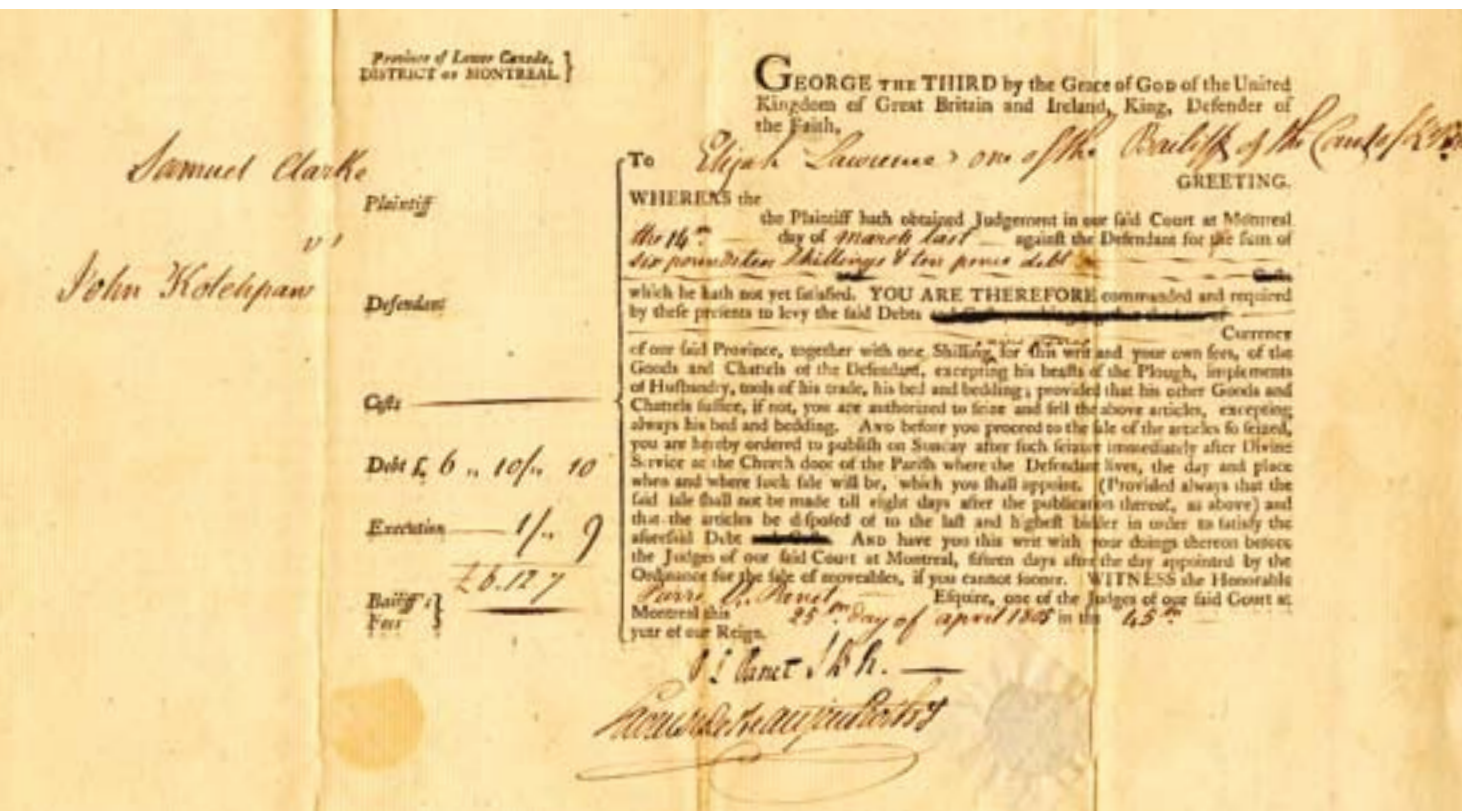 Province of Lower Canada,
DISTRICT OF MONTREAL.
GEORGE THE THIRD by the Grace of GOD of the United
Kingdom of Great Britain and Ireland, King, Defender of
the Faith,
To Elijah Lawrence one of the Bailiffs of the Court of
GREETING.
Samuel Clarke
Plaintiff
vs
John Kotchpaw
Defendant
Costs
Debt £ 6 " 10/" 10
Execution 1/" 9
£6.12 7
Bailiff's
Fees
WHEREAS the
the Plaintiff hath obtained Judgement in our said Court at Montreal
the 14th day of March last against the Defendant for the sum of
six pounds ten shillings & ten pence debt
Costs
which he hath not yet satisfied. YOU ARE THEREFORE commanded and required
by these presents to levy the said Debts
Currency
of our said Province, together with one Shilling for this writ and your own fees, of the
Goods and Chattels of the Defendant, excepting his beasts of the Plough, implements
of Husbandry, tools of his trade, his bed and bedding; provided that his other Goods and
Chattels suffice, if not, you are authorized to seize and sell the above articles, excepting
always his bed and bedding. AND before you proceed to the sale of the articles so seized,
you are hereby ordered to publish on Sunday after such seizure immediately after Divine
Service at the Church door of the Parish where the Defendant lives, the day and place
when and where such sale will be, which you shall appoint. (Provided always that the
said sale shall not be made till eight days after the publication thereof, as above) and
that the articles be disposed of to the last and highest bidder in order to satisfy the
aforesaid Debt AND have you this writ with your doings thereon before
the Judges of our said Court at Montreal, fifteen days after the day appointed by the
Ordinance for the sale of moveables, if you cannot sooner. WITNESS the Honorable
Pierre L. Panet Esquire, one of the Judges of our said Court at
Montreal this 25th day of april 1805 in the 45th
year of our Reign.
P L Panet J.B.R.